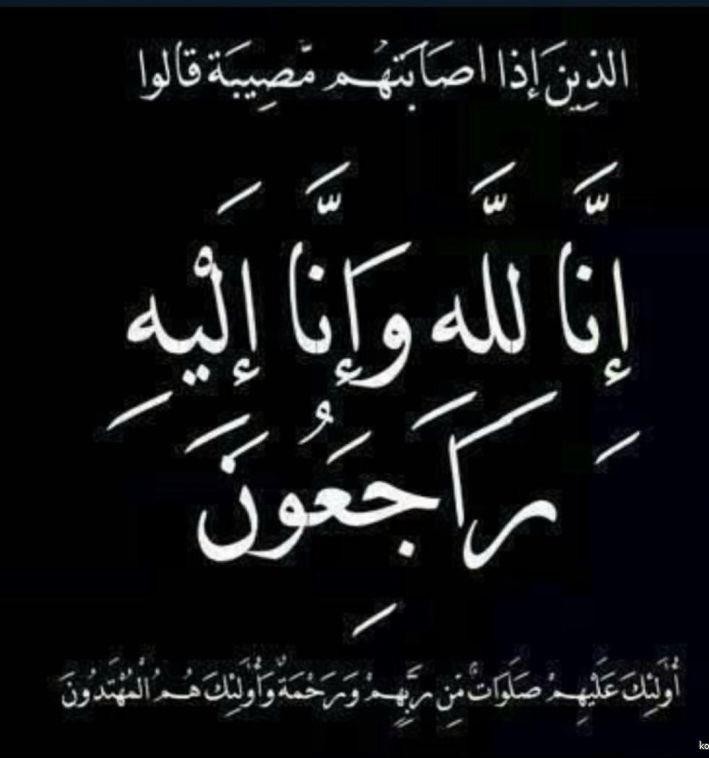 الذِينَ إذا اصَابَتهُم مّصِيبَة قالوا
إِنَّا للَّه وَإِنَّا إِلَيْهِ
رَاجِعُونَ
أُولَئِكَ عَلَيْهِمْ صَلَوَاتٌ مِّن رَّبِّهِمْ وَرَحْمَةٌ وَأُولَئِكَ هُمُ الْمُهْتَدُونَ
ko